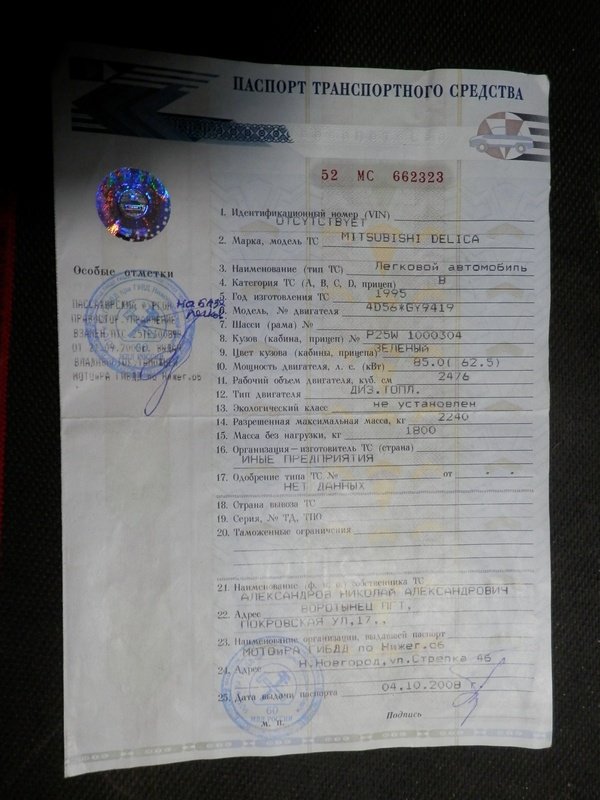 ПАСПОРТ ТРАНСПОРТНОГО СРЕДСТВА
52 МС 662323
1. Идентификационный номер (VIN)
ОТСУТСТВУЕТ
2. Марка, модель ТС MITSUBISHI DELICA
3. Наименование (тип ТС) Легковой автомобиль
4. Категория ТС (A, B, C, D, прицеп) B
5. Год изготовления ТС 1995
6. Модель, № двигателя 4D56*GY9419
7. Шасси (рама) №
8. Кузов (кабина, прицеп) № P25W 1000304
9. Цвет кузова (кабины, прицепа) ЗЕЛЕНЫЙ
10. Мощность двигателя, л. с. (кВт) 85.0( 62.5)
11. Рабочий объем двигателя, куб. см 2476
12. Тип двигателя ДИЗ.ТОПЛ.
13. Экологический класс не установлен
14. Разрешенная максимальная масса, кг 2240
15. Масса без нагрузки, кг 1800
16. Организация—изготовитель ТС (страна)
ИНЫЕ ПРЕДПРИЯТИЯ
17. Одобрение типа ТС № от . .
НЕТ ДАННЫХ
18. Страна вывоза ТС
19. Серия, № ТД, ТПО
20. Таможенные ограничения
21. Наименование (ф. и. о.) собственника ТС
АЛЕКСАНДРОВ НИКОЛАЙ АЛЕКСАНДРОВИЧ
22. Адрес ВОРОТЫНЕЦ ПГТ,
ПОКРОВСКАЯ УЛ,17,.
23. Наименование организации, выдавшей паспорт
МОТОиРА ГИБДД по Нижег.об
24. Адрес Н.Новгород,ул.Стрелка 4б
25. Дата выдачи паспорта 04.10.2008 г.
М. П. Подпись
Особые отметки
на базе
легков.
МОТОиРА ГИБДД по Нижег.об
60
МВД РОССИИ